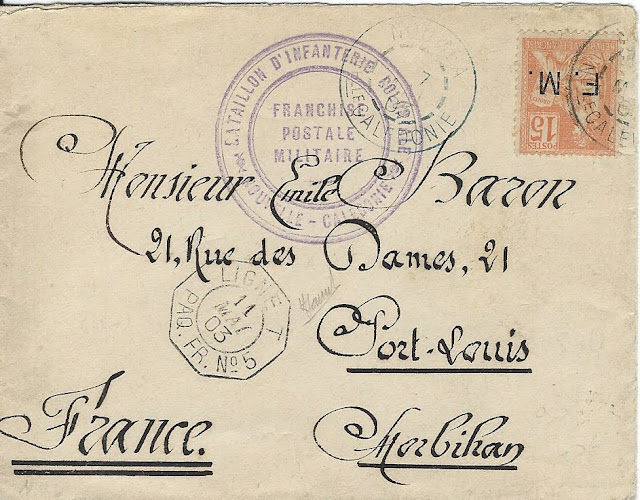 BATAILLON D'INFANTERIE COLONIALE
NOUVELLE - CALÉDONIE
FRANCHISE
POSTALE
MILITAIRE
7
F. M.
POSTES
15
Monsieur Emile Baron
21, Rue des Dames, 21
Port-Louis
Morbihan
France.
LIGNE T
11
MAI
03
PAQ. FR. Nº 5